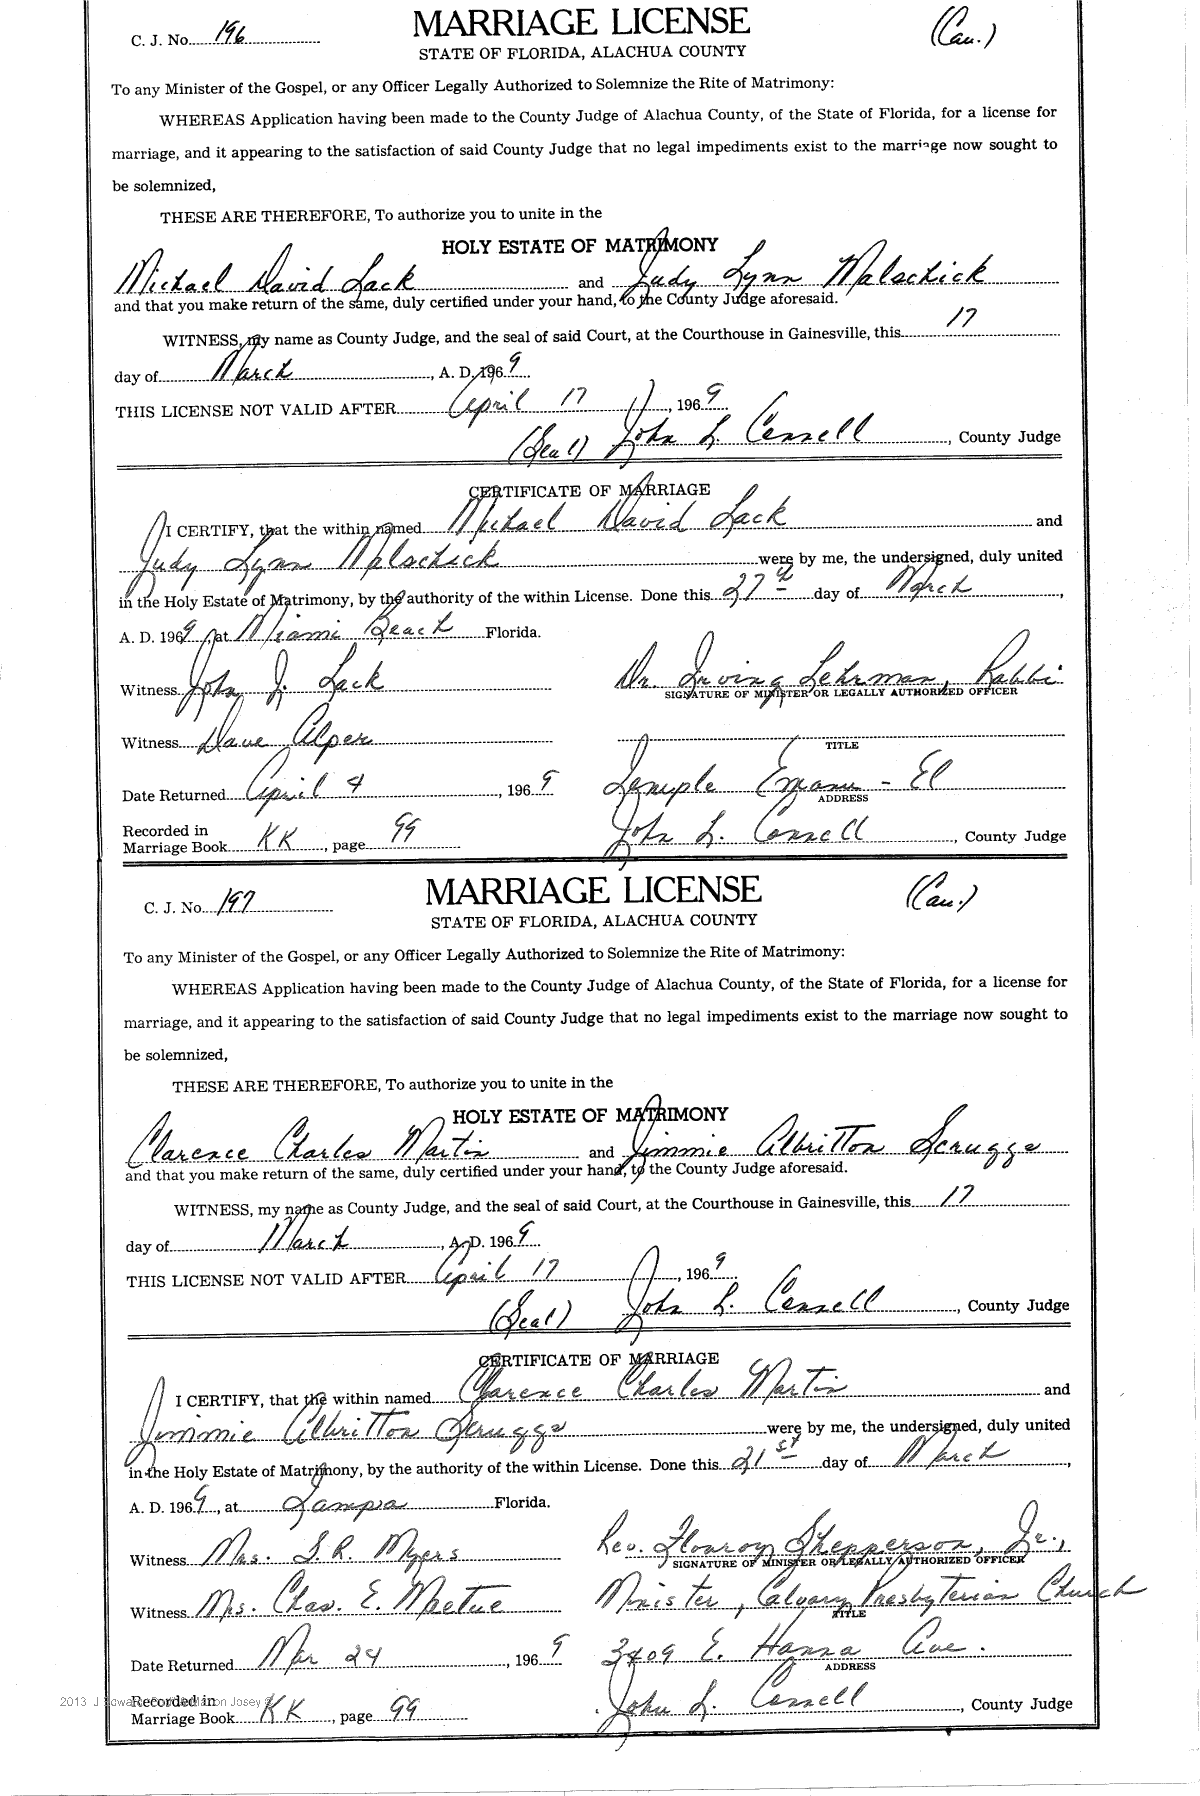 C. J. No. 196
MARRIAGE LICENSE
(Cau.)
STATE OF FLORIDA, ALACHUA COUNTY
To any Minister of the Gospel, or any Officer Legally Authorized to Solemnize the Rite of Matrimony:
WHEREAS Application having been made to the County Judge of Alachua County, of the State of Florida, for a license for
marriage, and it appearing to the satisfaction of said County Judge that no legal impediments exist to the marriage now sought to
be solemnized,
THESE ARE THEREFORE, To authorize you to unite in the
HOLY ESTATE OF MATRIMONY
Michael David Lack and Judy Lynn Malschick
and that you make return of the same, duly certified under your hand, to the County Judge aforesaid.
WITNESS, my name as County Judge, and the seal of said Court, at the Courthouse in Gainesville, this 17
day of March, A. D. 1969
THIS LICENSE NOT VALID AFTER April 17, 1969
(Seal) John L. Connell, County Judge
CERTIFICATE OF MARRIAGE
I CERTIFY, that the within named Michael David Lack and
Judy Lynn Malschick were by me, the undersigned, duly united
in the Holy Estate of Matrimony, by the authority of the within License. Done this 27th day of March,
A. D. 1969, at Miami Beach Florida.
Witness John J. Lack Dr. Irving Lehrman, Rabbi
SIGNATURE OF MINISTER OR LEGALLY AUTHORIZED OFFICER
Witness Dave Alper
TITLE
Date Returned April 4, 1969 Temple Emanu-El
ADDRESS
Recorded in
Marriage Book KK, page 99 John L. Connell, County Judge
C. J. No. 197
MARRIAGE LICENSE
(Cau.)
STATE OF FLORIDA, ALACHUA COUNTY
To any Minister of the Gospel, or any Officer Legally Authorized to Solemnize the Rite of Matrimony:
WHEREAS Application having been made to the County Judge of Alachua County, of the State of Florida, for a license for
marriage, and it appearing to the satisfaction of said County Judge that no legal impediments exist to the marriage now sought to
be solemnized,
THESE ARE THEREFORE, To authorize you to unite in the
HOLY ESTATE OF MATRIMONY
Clarence Charles Martin and Jimmie Albritton Scruggs
and that you make return of the same, duly certified under your hand, to the County Judge aforesaid.
WITNESS, my name as County Judge, and the seal of said Court, at the Courthouse in Gainesville, this 17
day of March, A. D. 1969
THIS LICENSE NOT VALID AFTER April 17, 1969
(Seal) John L. Connell, County Judge
CERTIFICATE OF MARRIAGE
I CERTIFY, that the within named Clarence Charles Martin and
Jimmie Albritton Scruggs were by me, the undersigned, duly united
in the Holy Estate of Matrimony, by the authority of the within License. Done this 21st day of March,
A. D. 1969, at Tampa Florida.
Witness Mrs. S. R. Myers Rev. Flonroy Shepperson, Jr.,
SIGNATURE OF MINISTER OR LEGALLY AUTHORIZED OFFICER
Witness Mrs. Chas. E. Minister, Calvary Presbyterian Church
TITLE
Date Returned Mar 24, 1969 3409 E. Hanna Ave.
ADDRESS
Recorded in
Marriage Book KK, page 99 John L. Connell, County Judge
2013 J Josey